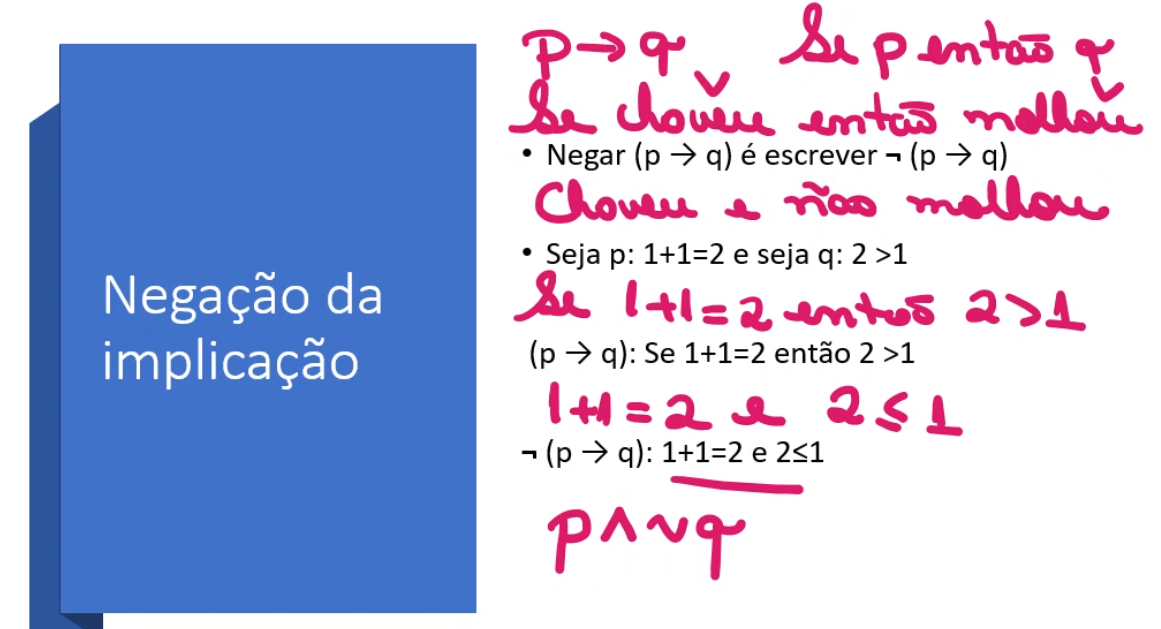 Negação da
implicação
p→q Se p então q
Se choveu então molhou
• Negar (p → q) é escrever ¬ (p → q)
Choveu e não molhou
• Seja p: 1+1=2 e seja q: 2 >1
Se 1+1=2 então 2>1
(p → q): Se 1+1=2 então 2 >1
1+1=2 e 2≤1
¬ (p → q): 1+1=2 e 2≤1
p∧~q